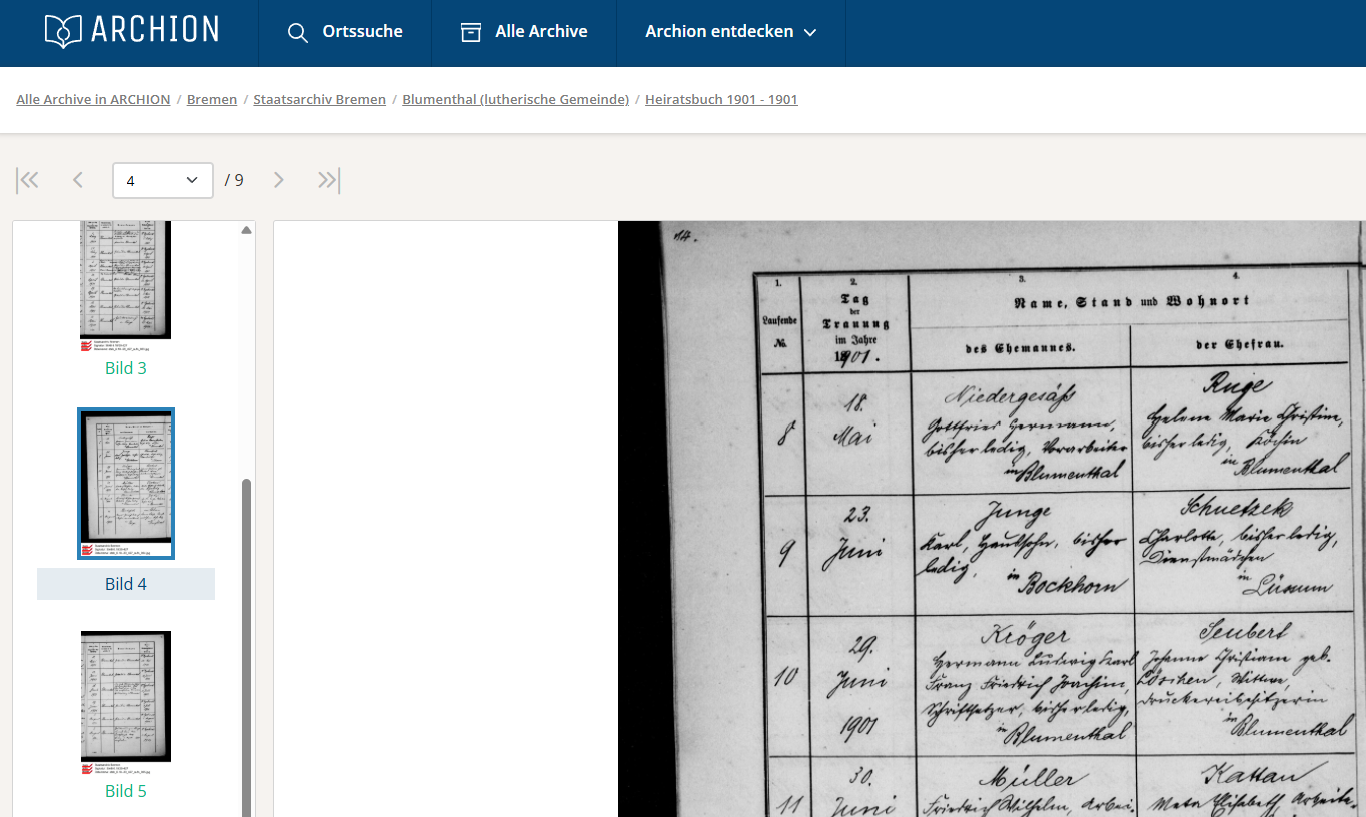 ARCHION
Ortssuche
Alle Archive
Archion entdecken
Alle Archive in ARCHION / Bremen / Staatsarchiv Bremen / Blumenthal (lutherische Gemeinde) / Heiratsbuch 1901 - 1901
4
/ 9
Bild 3
Bild 4
Bild 5
14.
1.
2.
3.
4.
Laufende
№.
Tag
der
Trauung
im Jahre
1901.
Name, Stand und Wohnort
des Ehemannes.
der Ehefrau.
8
18.
Mai
Niedergesäß
Gottfried Hermann,
bisher ledig, Vorarbeiter
in Blumenthal
Ruge
Helene Marie Christine,
bisher ledig, Köchin
in Blumenthal
9
23.
Juni
Junge
Karl, Haussohn, bisher
ledig,
in
Bockhorn
Schuetzek
Charlotte, bisher ledig,
Dienstmädchen
in
Lüssum
10
29.
Juni
1901
Kröger
Hermann Ludwig Karl
Franz Friedrich Joachim,
Schriftsetzer, bisher ledig,
in Blumenthal
Seubert
Johanne Christiane geb.
Witwe,
Druckereibesitzerin
in Blumenthal
11
30.
Juni
Müller
Friedrich Wilhelm, Arbei-
Kattau
Meta Elisabeth, Arbeite-